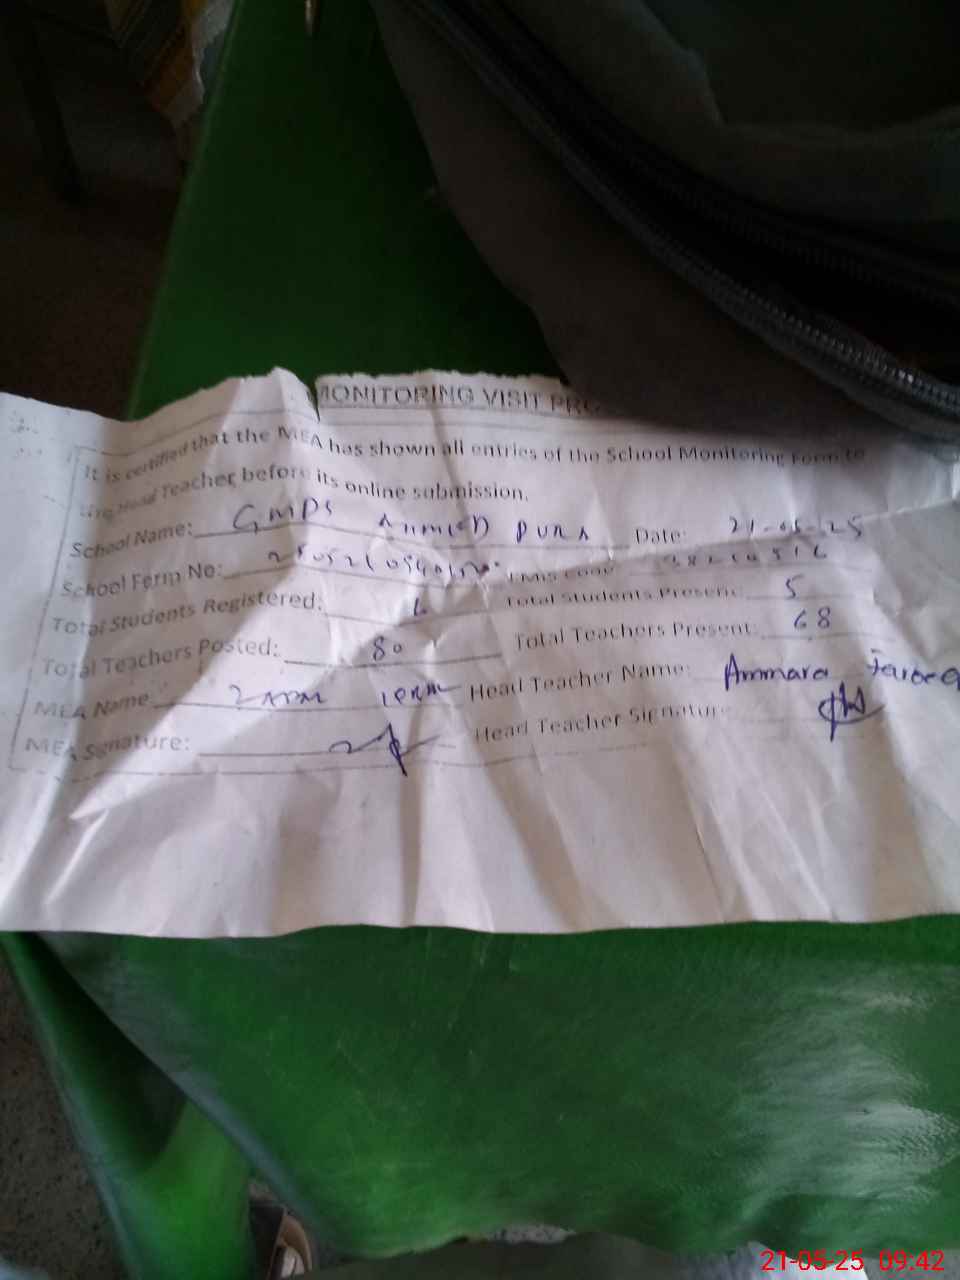 MONITORING VISIT PRO
It is certified that the MEA has shown all entries of the School Monitoring Form to
Head Teacher before its online submission.
School Name: GMPS AHMED PURA Date: 21-05-25
School Form No: EMIS Code:
Total Students Registered: 6 Total Students Present: 5
Total Teachers Posted: 80 Total Teachers Present: 68
MEA Name: Head Teacher Name: Ammara
MEA Signature: Head Teacher Signature:
21-05-25 09:42